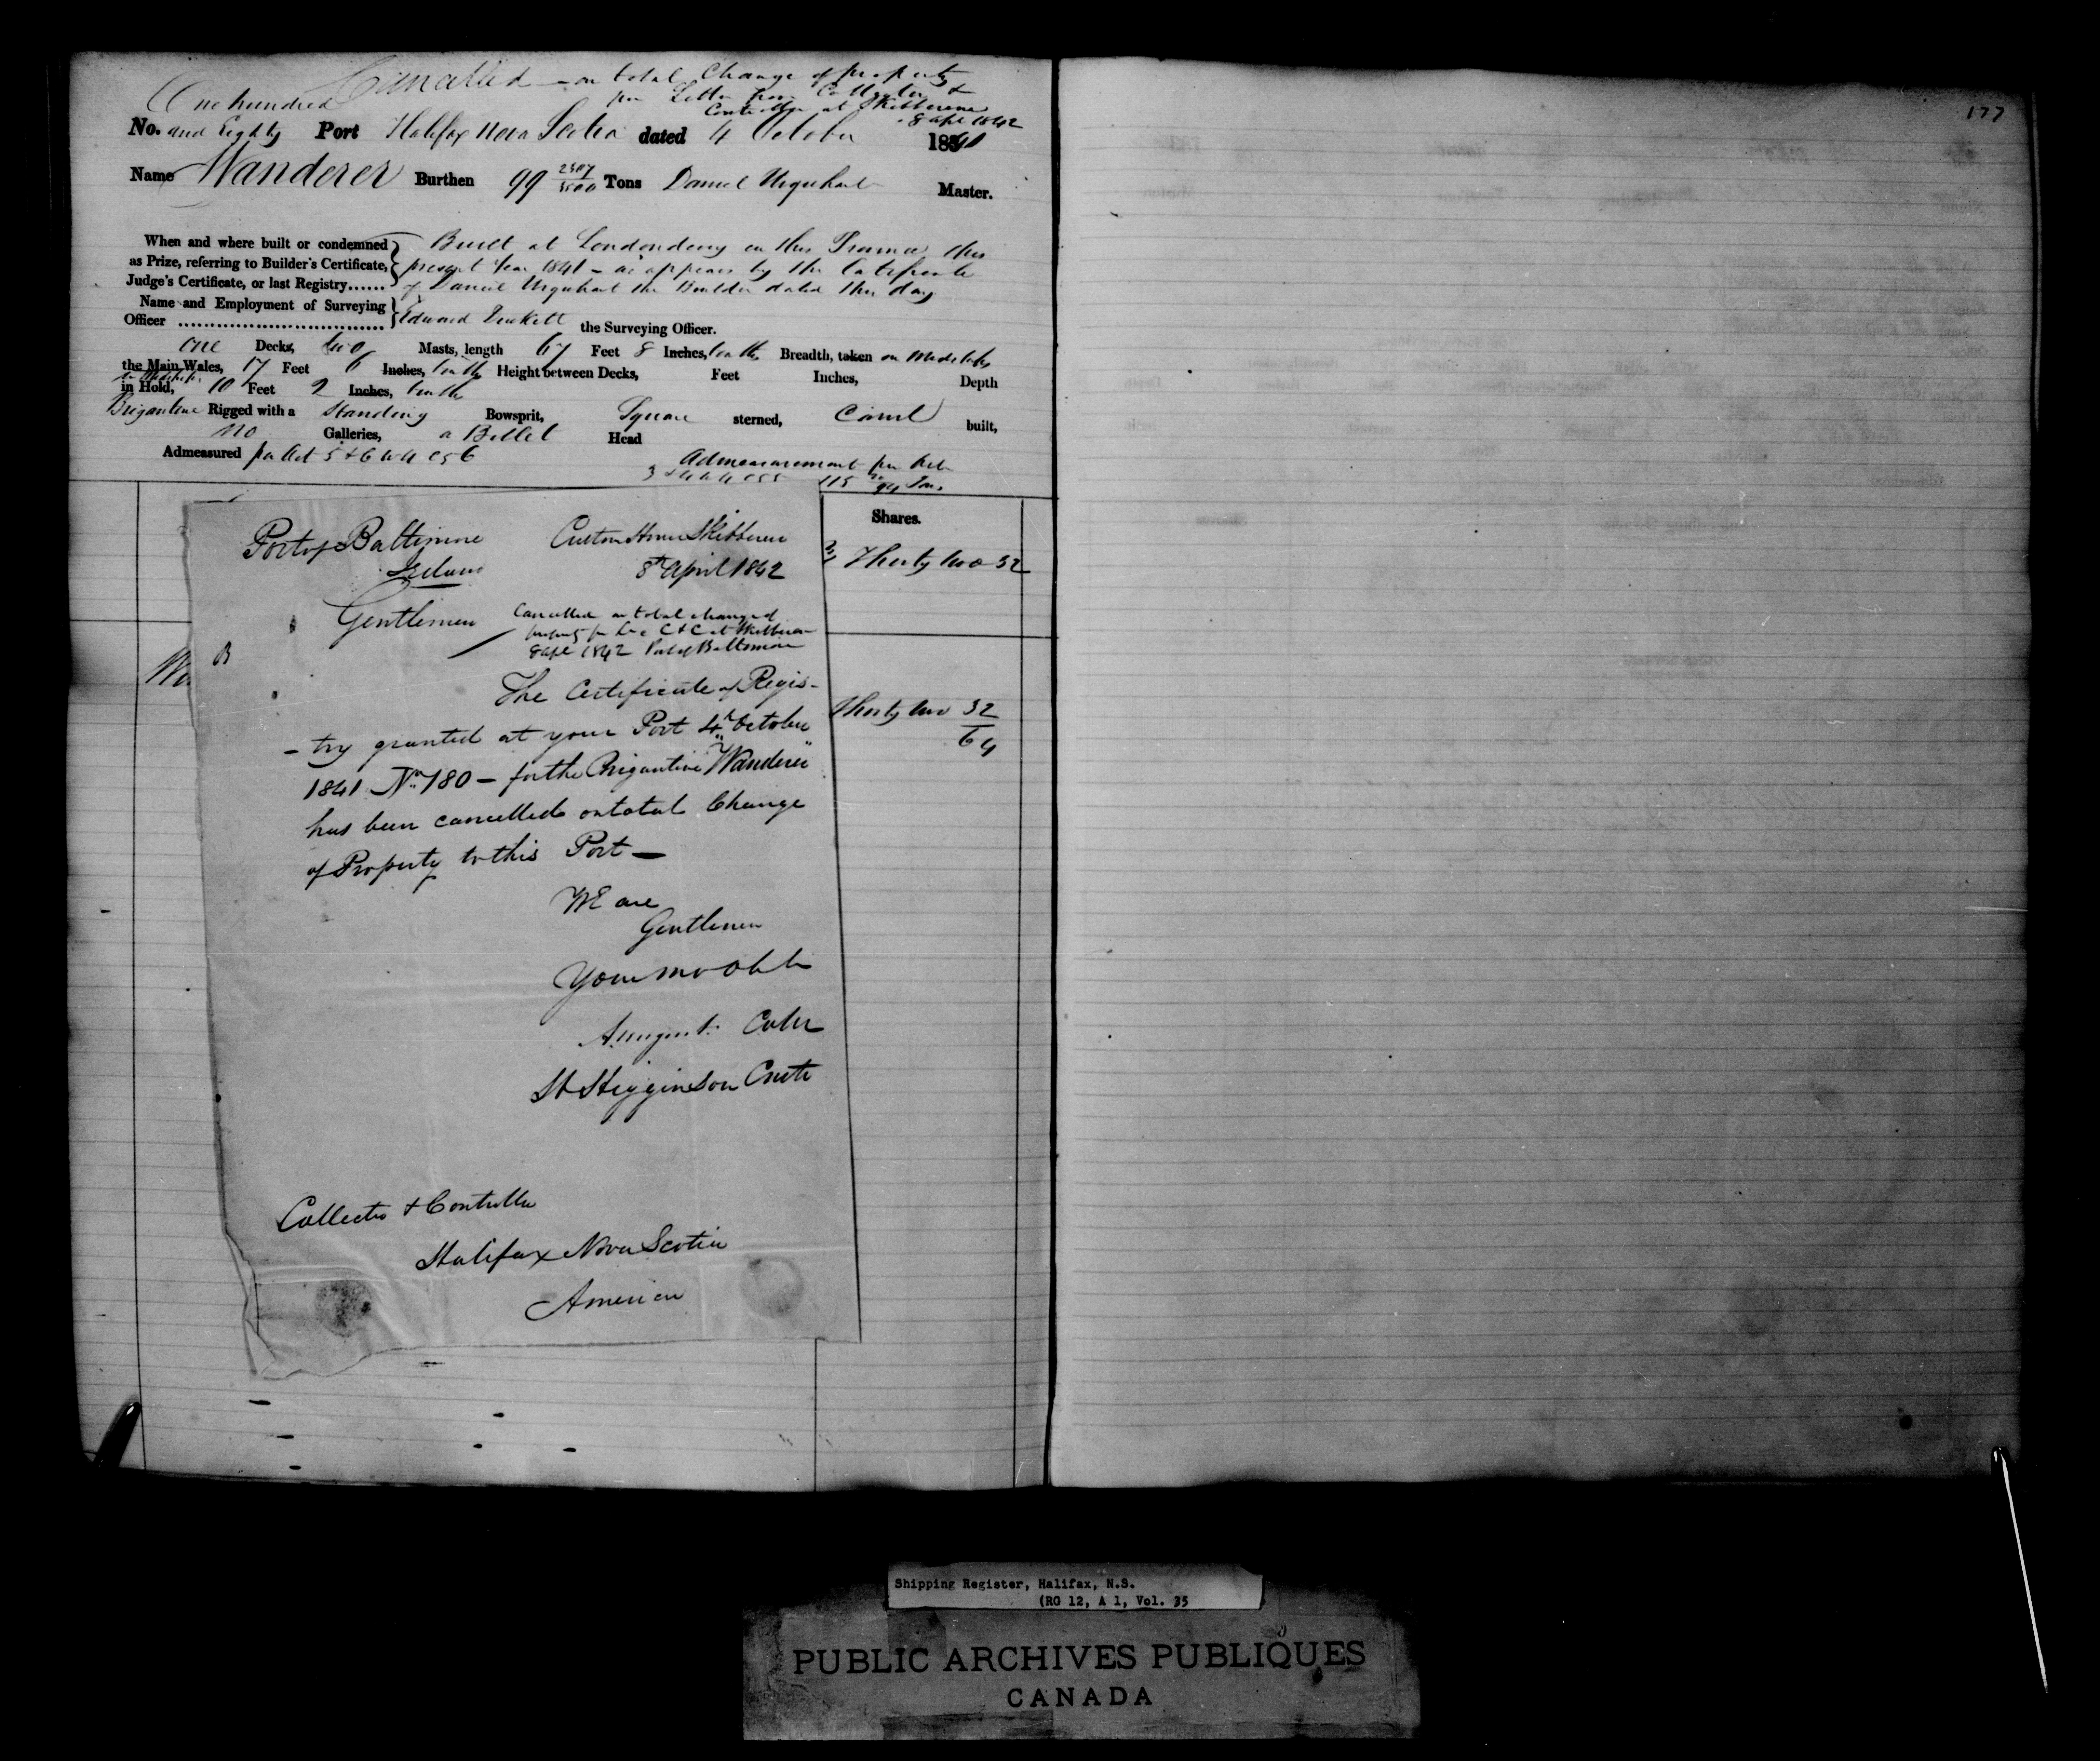 Cancelled - on total Change of property
per Letter from Collector &
Controller at Skibbereen
8 Apl 1842
One hundred
No. and Eighty Port Halifax Nova Scotia dated 4 October 1841
Name Wanderer Burthen 99 2507/3500 Tons Daniel Urquhart Master.
When and where built or condemned
as Prize, referring to Builder's Certificate,
Judge's Certificate, or last Registry......
Built at Londonderry in this Province this
present Year 1841 - as appears by the Certificate
of Daniel Urquhart the Builder dated this day
Name and Employment of Surveying
Officer ................................
Edward the Surveying Officer.
One Decks, two Masts, length 67 Feet 8 Inches, tenths Breadth, taken on Midships
the Main Wales, 17 Feet 6 Inches, tenths Height between Decks, Feet Inches, Depth
in Midships
in Hold, 10 Feet 2 Inches, tenths
Brigantine Rigged with a Standing Bowsprit, Square sterned, Carvel built,
no Galleries, a Billet Head
Admeasured per Act 5 & 6 W 4 C 56
Admeasurement per Act
3 & 4 W 4 C 55 115 94 Tons
Shares.
Thirty two 32
Thirty two 32
64
177
Port of Baltimore
Ireland
Custom House Skibbereen
8th April 1842
Gentlemen
Cancelled on total change of
property C & C at Skibbereen
8 Apl 1842 Port of Baltimore
B
The Certificate of Regis-
- try granted at your Port 4th October
1841 No 180 - for the Brigantine "Wanderer"
has been cancelled on total Change
of Property to this Port -
We are
Gentlemen
Your mo ob
Collr
H Higginson Contr
Collector & Controller
Halifax Nova Scotia
America
Shipping Register, Halifax, N.S.
(RG 12, A 1, Vol. 35
PUBLIC ARCHIVES PUBLIQUES
CANADA